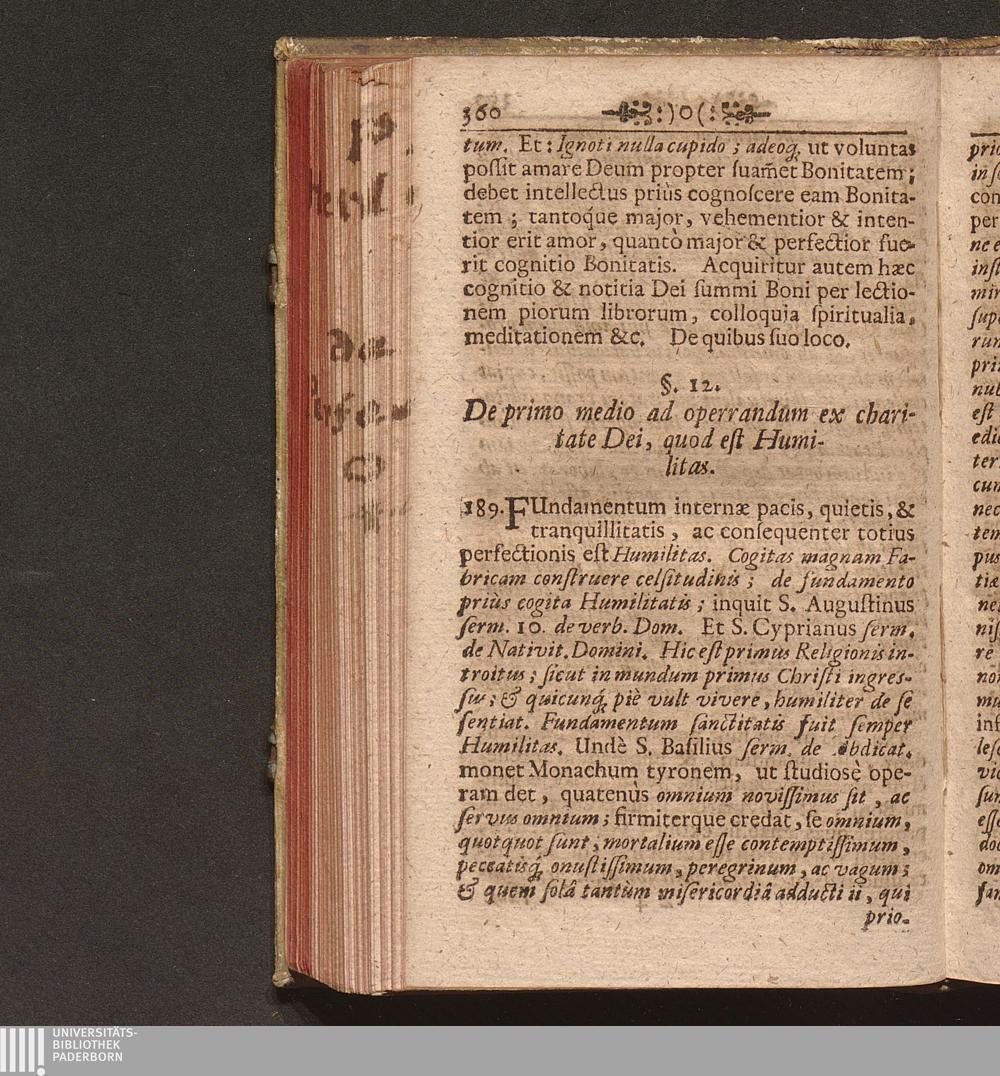 360 :)o(:
tum. Et: Ignoti nulla cupido; adeoq́; ut voluntas
poſſit amare Deum propter ſuam̃et Bonitatem;
debet intellectus priùs cognoſcere eam Bonita-
tem; tantoq́ue major, vehementior & inten-
tior erit amor, quantò major & perfectior fue-
rit cognitio Bonitatis. Acquiritur autem hæc
cognitio & notitia Dei ſummi Boni per lectio-
nem piorum librorum, colloquia ſpiritualia,
meditationem &c. De quibus ſuo loco.
§. 12.
De primo medio ad operrandum ex chari-
tate Dei, quod eſt Humi-
litas.
189. FUndamentum internæ pacis, quietis, &
tranquillitatis, ac conſequenter totius
perfectionis eſt Humilitas. Cogitas magnam Fa-
bricam conſtruere celſitudinis; de fundamento
priùs cogita Humilitatis; inquit S. Auguſtinus
ſerm. 10. de verb. Dom. Et S. Cyprianus ſerm.
de Nativit. Domini. Hic eſt primus Religionis in-
troitus; ſicut in mundum primus Chriſti ingreſ-
ſus; & quicunq́; piè vult vivere, humiliter de ſe
ſentiat. Fundamentum ſanctitatis fuit ſemper
Humilitas. Undè S. Baſilius ſerm. de Abdicat.
monet Monachum tyronem, ut ſtudiosè ope-
ram det, quatenùs omnium noviſſimus ſit, ac
ſervus omnium; firmiterque credat, ſe omnium,
quotquot ſunt, mortalium eſſe contemptiſſimum,
peccatisq́; onuſtiſſimum, peregrinum, ac vagum;
& quem ſolâ tantùm miſericordiâ adducti ii, qui
prio-
UNIVERSITÄTS-
BIBLIOTHEK
PADERBORN